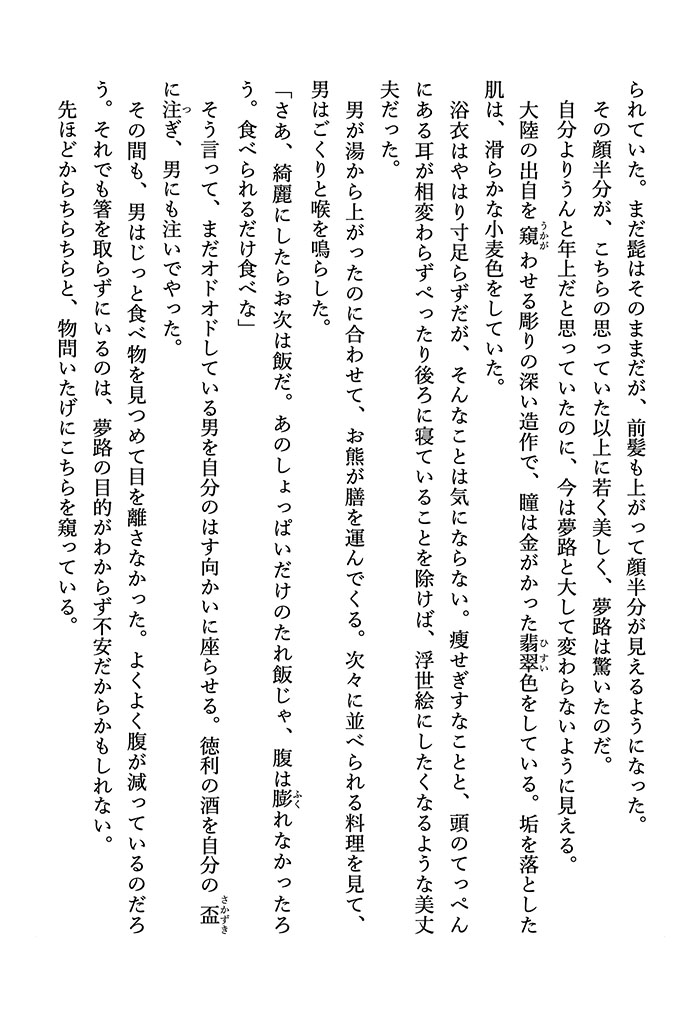 られていた。まだ髭はそのままだが、前髪も上がって顔半分が見えるようになった。
その顔半分が、こちらの思っていた以上に若く美しく、夢路は驚いたのだ。
自分よりうんと年上だと思っていたのに、今は夢路と大して変わらないように見える。
大陸の出自を窺わせる彫りの深い造作で、瞳は金がかった翡翠色をしている。垢を落とした
肌は、滑らかな小麦色をしていた。
浴衣はやはり寸足らずだが、そんなことは気にならない。痩せぎすなことと、頭のてっぺん
にある耳が相変わらずぺったり後ろに寝ていることを除けば、浮世絵にしたくなるような美丈
夫だった。
男が湯から上がったのに合わせて、お熊が膳を運んでくる。次々に並べられる料理を見て、
男はごくりと喉を鳴らした。
「さあ、綺麗にしたらお次は飯だ。あのしょっぱいだけのたれ飯じゃ、腹は膨れなかったろ
う。食べられるだけ食べな」
そう言って、まだオドオドしている男を自分のはす向かいに座らせる。徳利の酒を自分の盃
に注ぎ、男にも注いでやった。
その間も、男はじっと食べ物を見つめて目を離さなかった。よくよく腹が減っているのだろ
う。それでも箸を取らずにいるのは、夢路の目的がわからず不安だからかもしれない。
先ほどからちらちらと、物問いたげにこちらを窺っている。